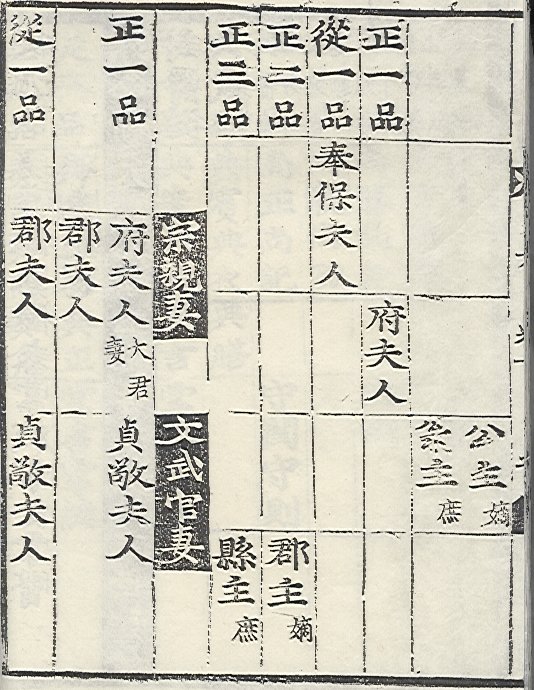 公主嫡
翁主庶
正一品
府夫人
從一品
奉保夫人
正二品
郡主嫡
正三品
縣主庶
宗親妻
文武官妻
正一品
府夫人大君妻
貞敬夫人
郡夫人
從一品
郡夫人
貞敬夫人